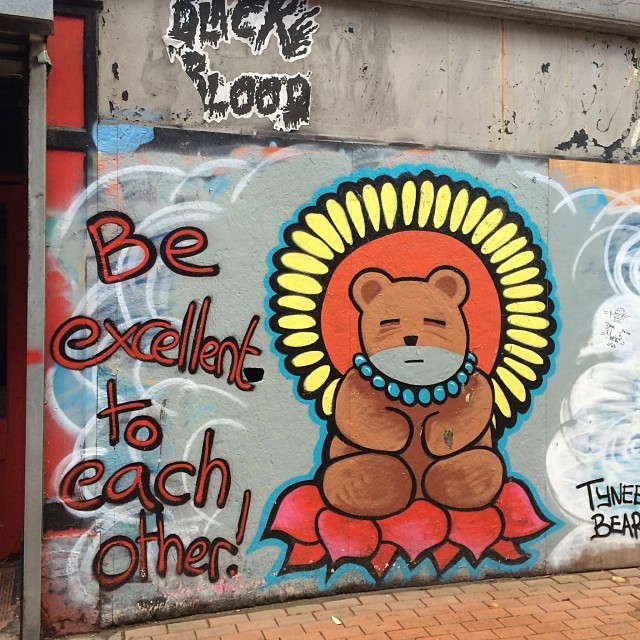 BLACK
BLOOD
Be
excellent
to
each
other!
TYNEE
BEAR